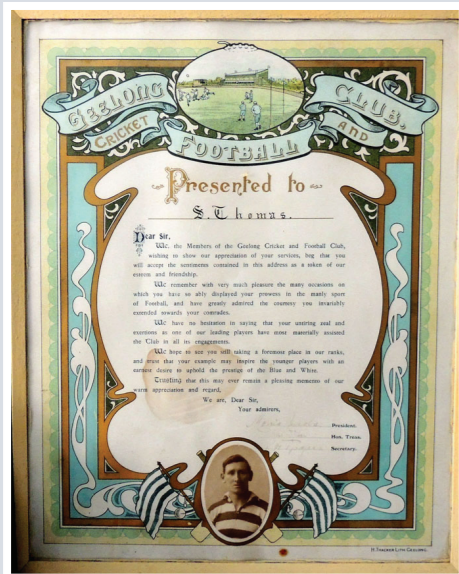 GEELONG
CRICKET
AND
FOOTBALL
CLUB.
Presented to
S. Thomas.
Dear Sir,
We, the Members of the Geelong Cricket and Football Club,
wishing to show our appreciation of your services, beg that you
will accept the sentiments contained in this address as a token of our
esteem and friendship.
We remember with very much pleasure the many occasions on
which you have so ably displayed your prowess in the manly sport
of Football, and have greatly admired the courtesy you invariably
extended towards your comrades.
We have no hesitation in saying that your untiring zeal and
exertions as one of our leading players have most materially assisted
the Club in all its engagements.
We hope to see you still taking a foremost place in our ranks,
and trust that your example may inspire the younger players with an
earnest desire to uphold the prestige of the Blue and White.
Trusting that this may ever remain a pleasing memento of our
warm appreciation and regard,
We are, Dear Sir,
Your admirers,
President.
Hon. Treas.
Secretary.
H. THACKER LITH. GEELONG.